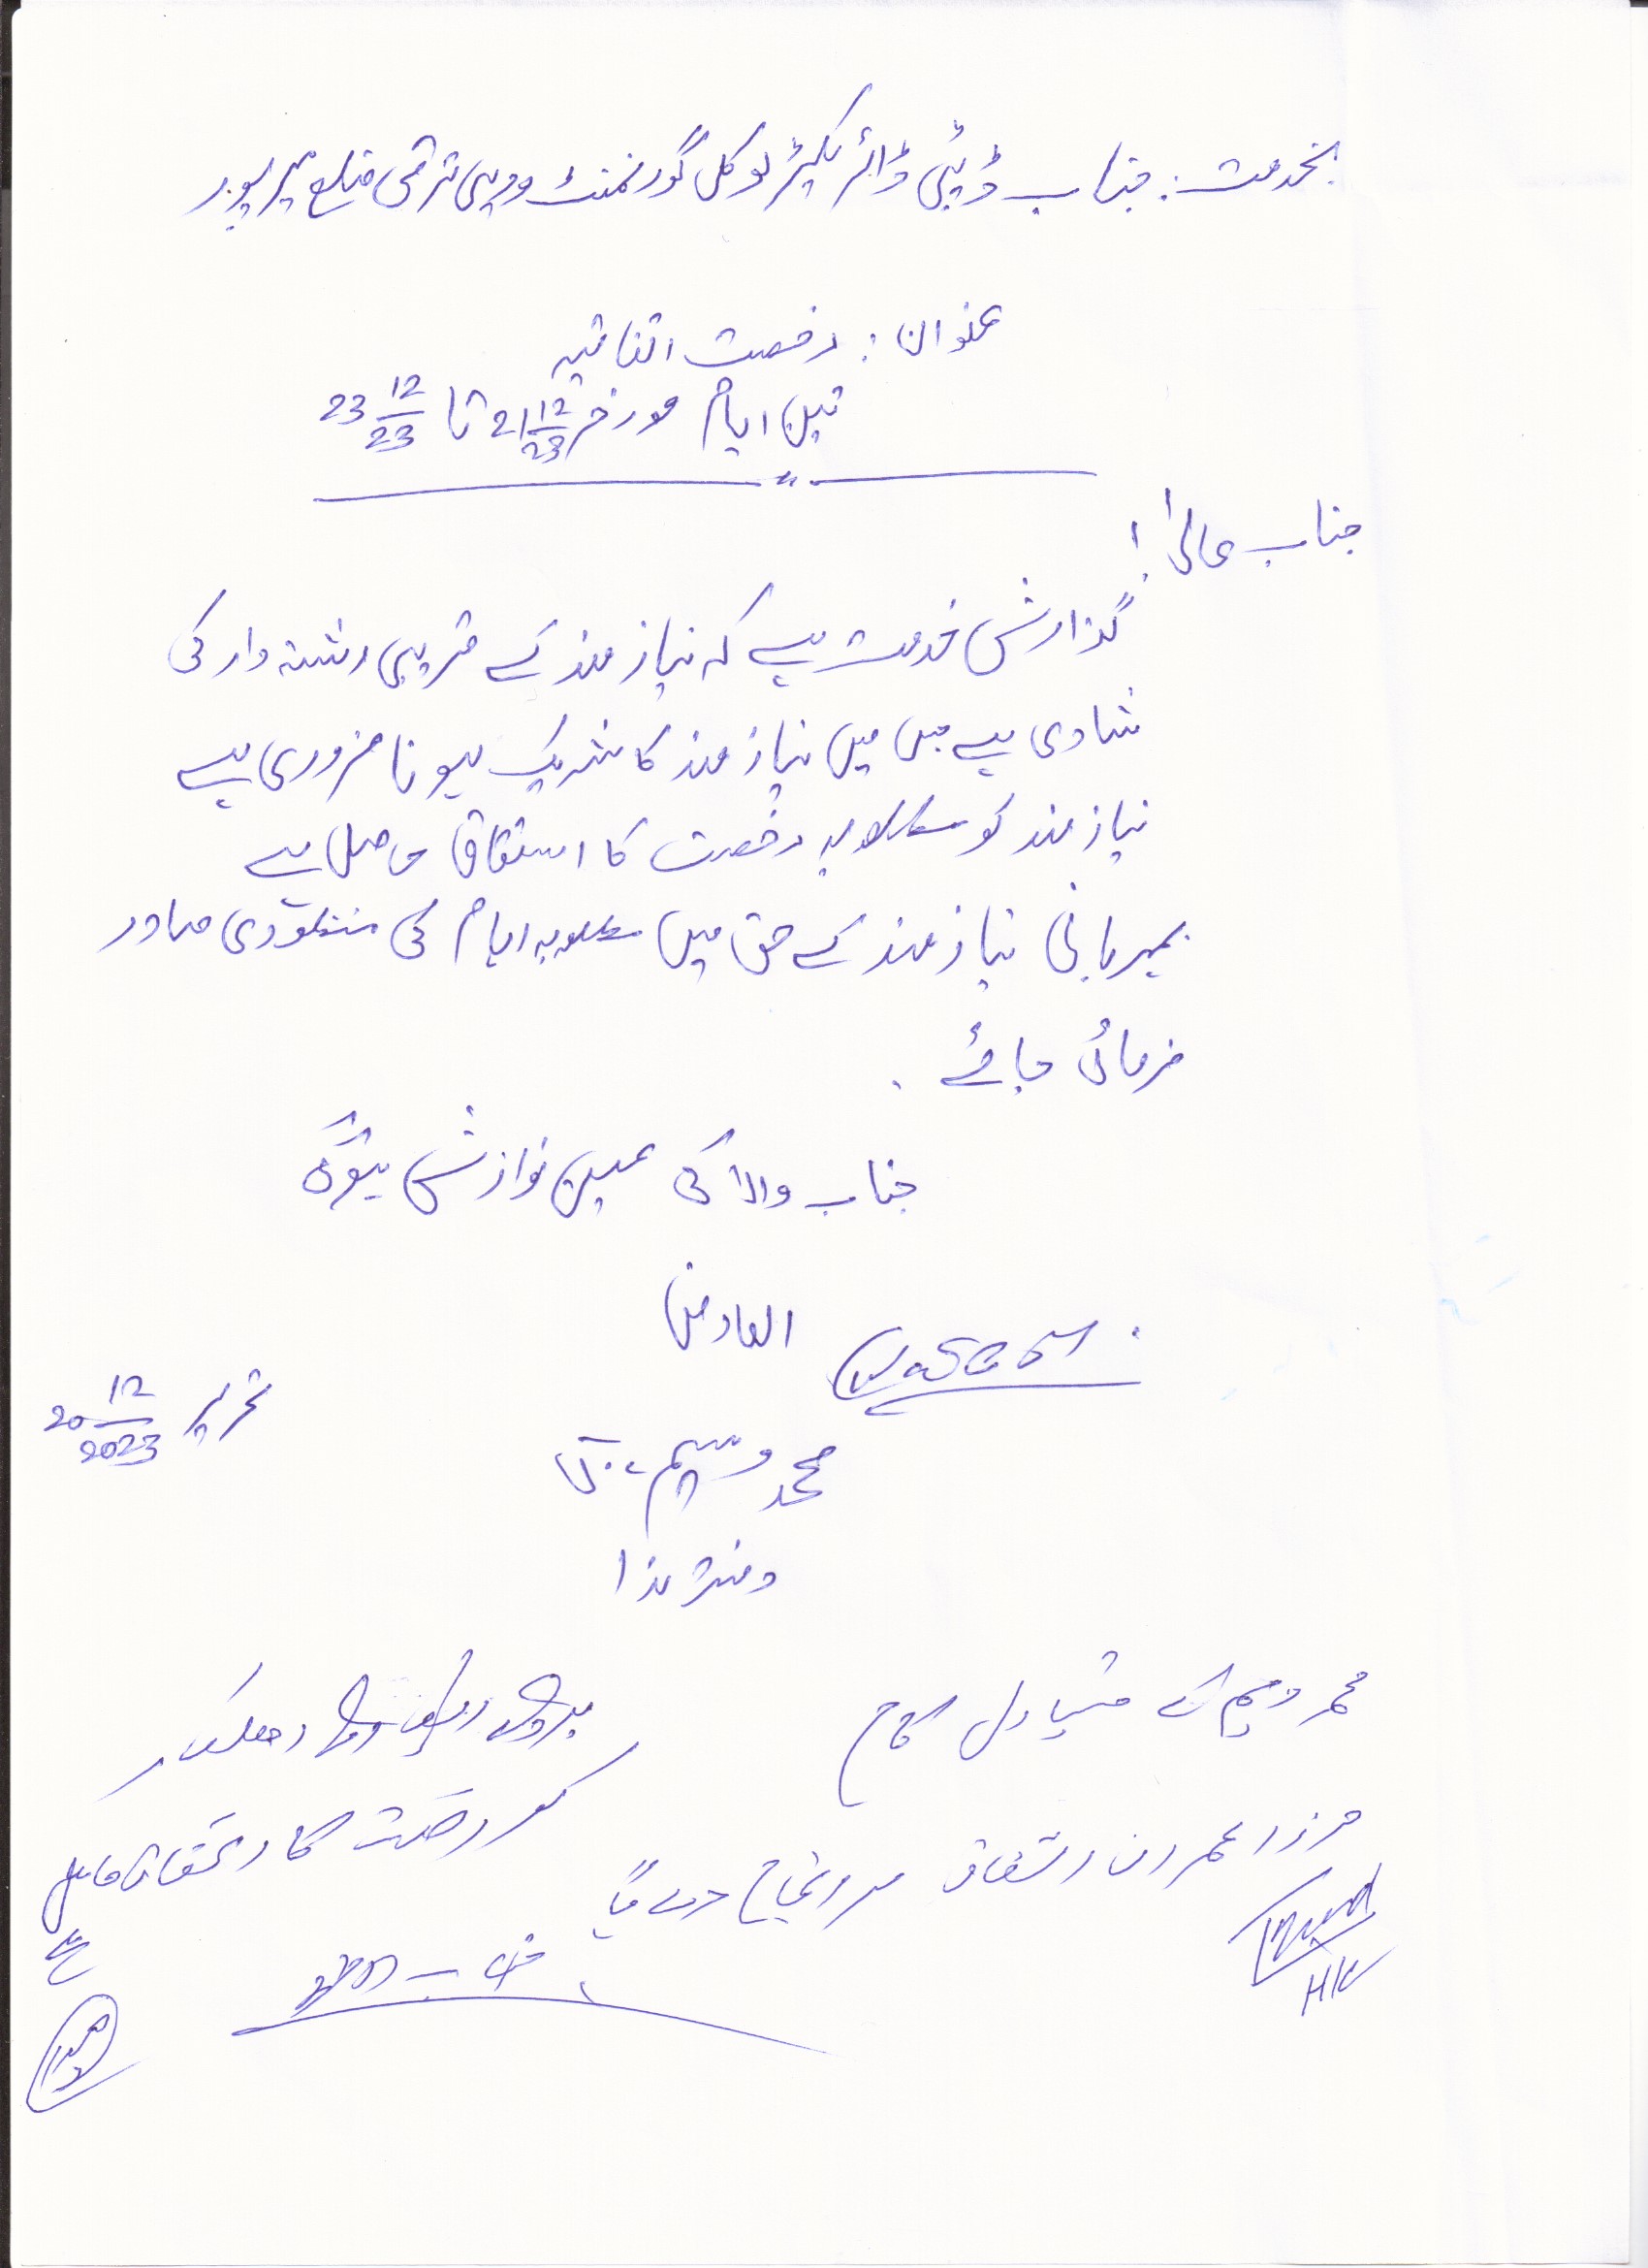 بخدمت: جناب ڈپٹی ڈائریکٹر لوکل گورنمنٹ و دیہی ترقی ضلع میرپور
عنوان: رخصت اتفاقیہ
تین ایام مورخہ 21-12-23 تا 23-12-23
جناب عالیٰ!
گذارش خدمت ہے کہ نیاز مند کے قریبی رشتہ دار کی
شادی ہے جس میں نیاز مند کا شریک ہونا ضروری ہے
نیاز مند کو مطلوبہ رخصت کا استحقاق حاصل ہے
بمہربانی نیاز مند کے حق میں مطلوبہ ایام کی منظوری صادر
فرمائی جائے.
جناب والا کی عین نوازش ہوگی
العارض
محمد وسیم
تحریر 20-12-2023
دفتر ہذا
محمد وسیم کے متبادل کام
مرزا عمران اشفاق سرانجام دے گا
کو رخصت کا استحقاق حاصل
ہے